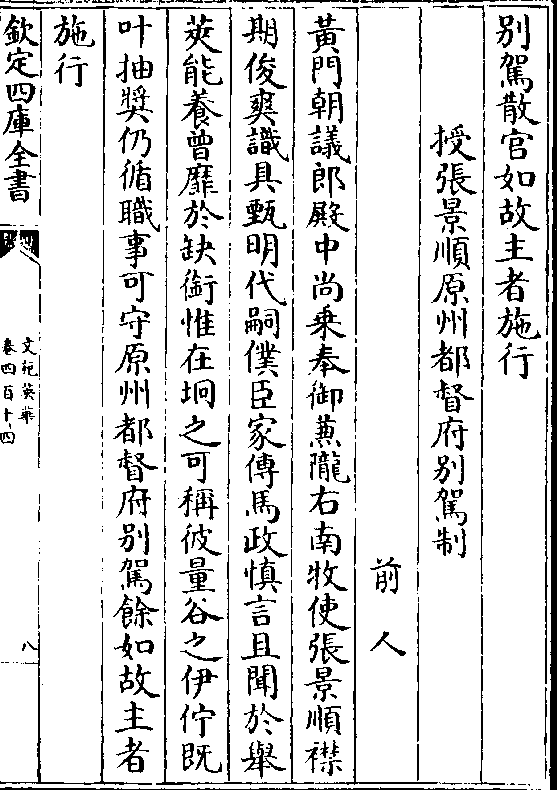 别駕散官如故主者施行
授張景順原州都督府别駕制
前人
黄門朝議郎殿中尚乗奉御兼隴右南牧使張景順襟
期俊爽識具甄明代嗣僕臣家傳馬政慎言且聞於舉
莢能養曾靡於缺銜惟在坰之可稱彼量谷之伊佇既
叶抽奬仍循職事可守原州都督府别駕餘如故主者
施行
欽定四庫全書
文苑英華
卷四百十四
八